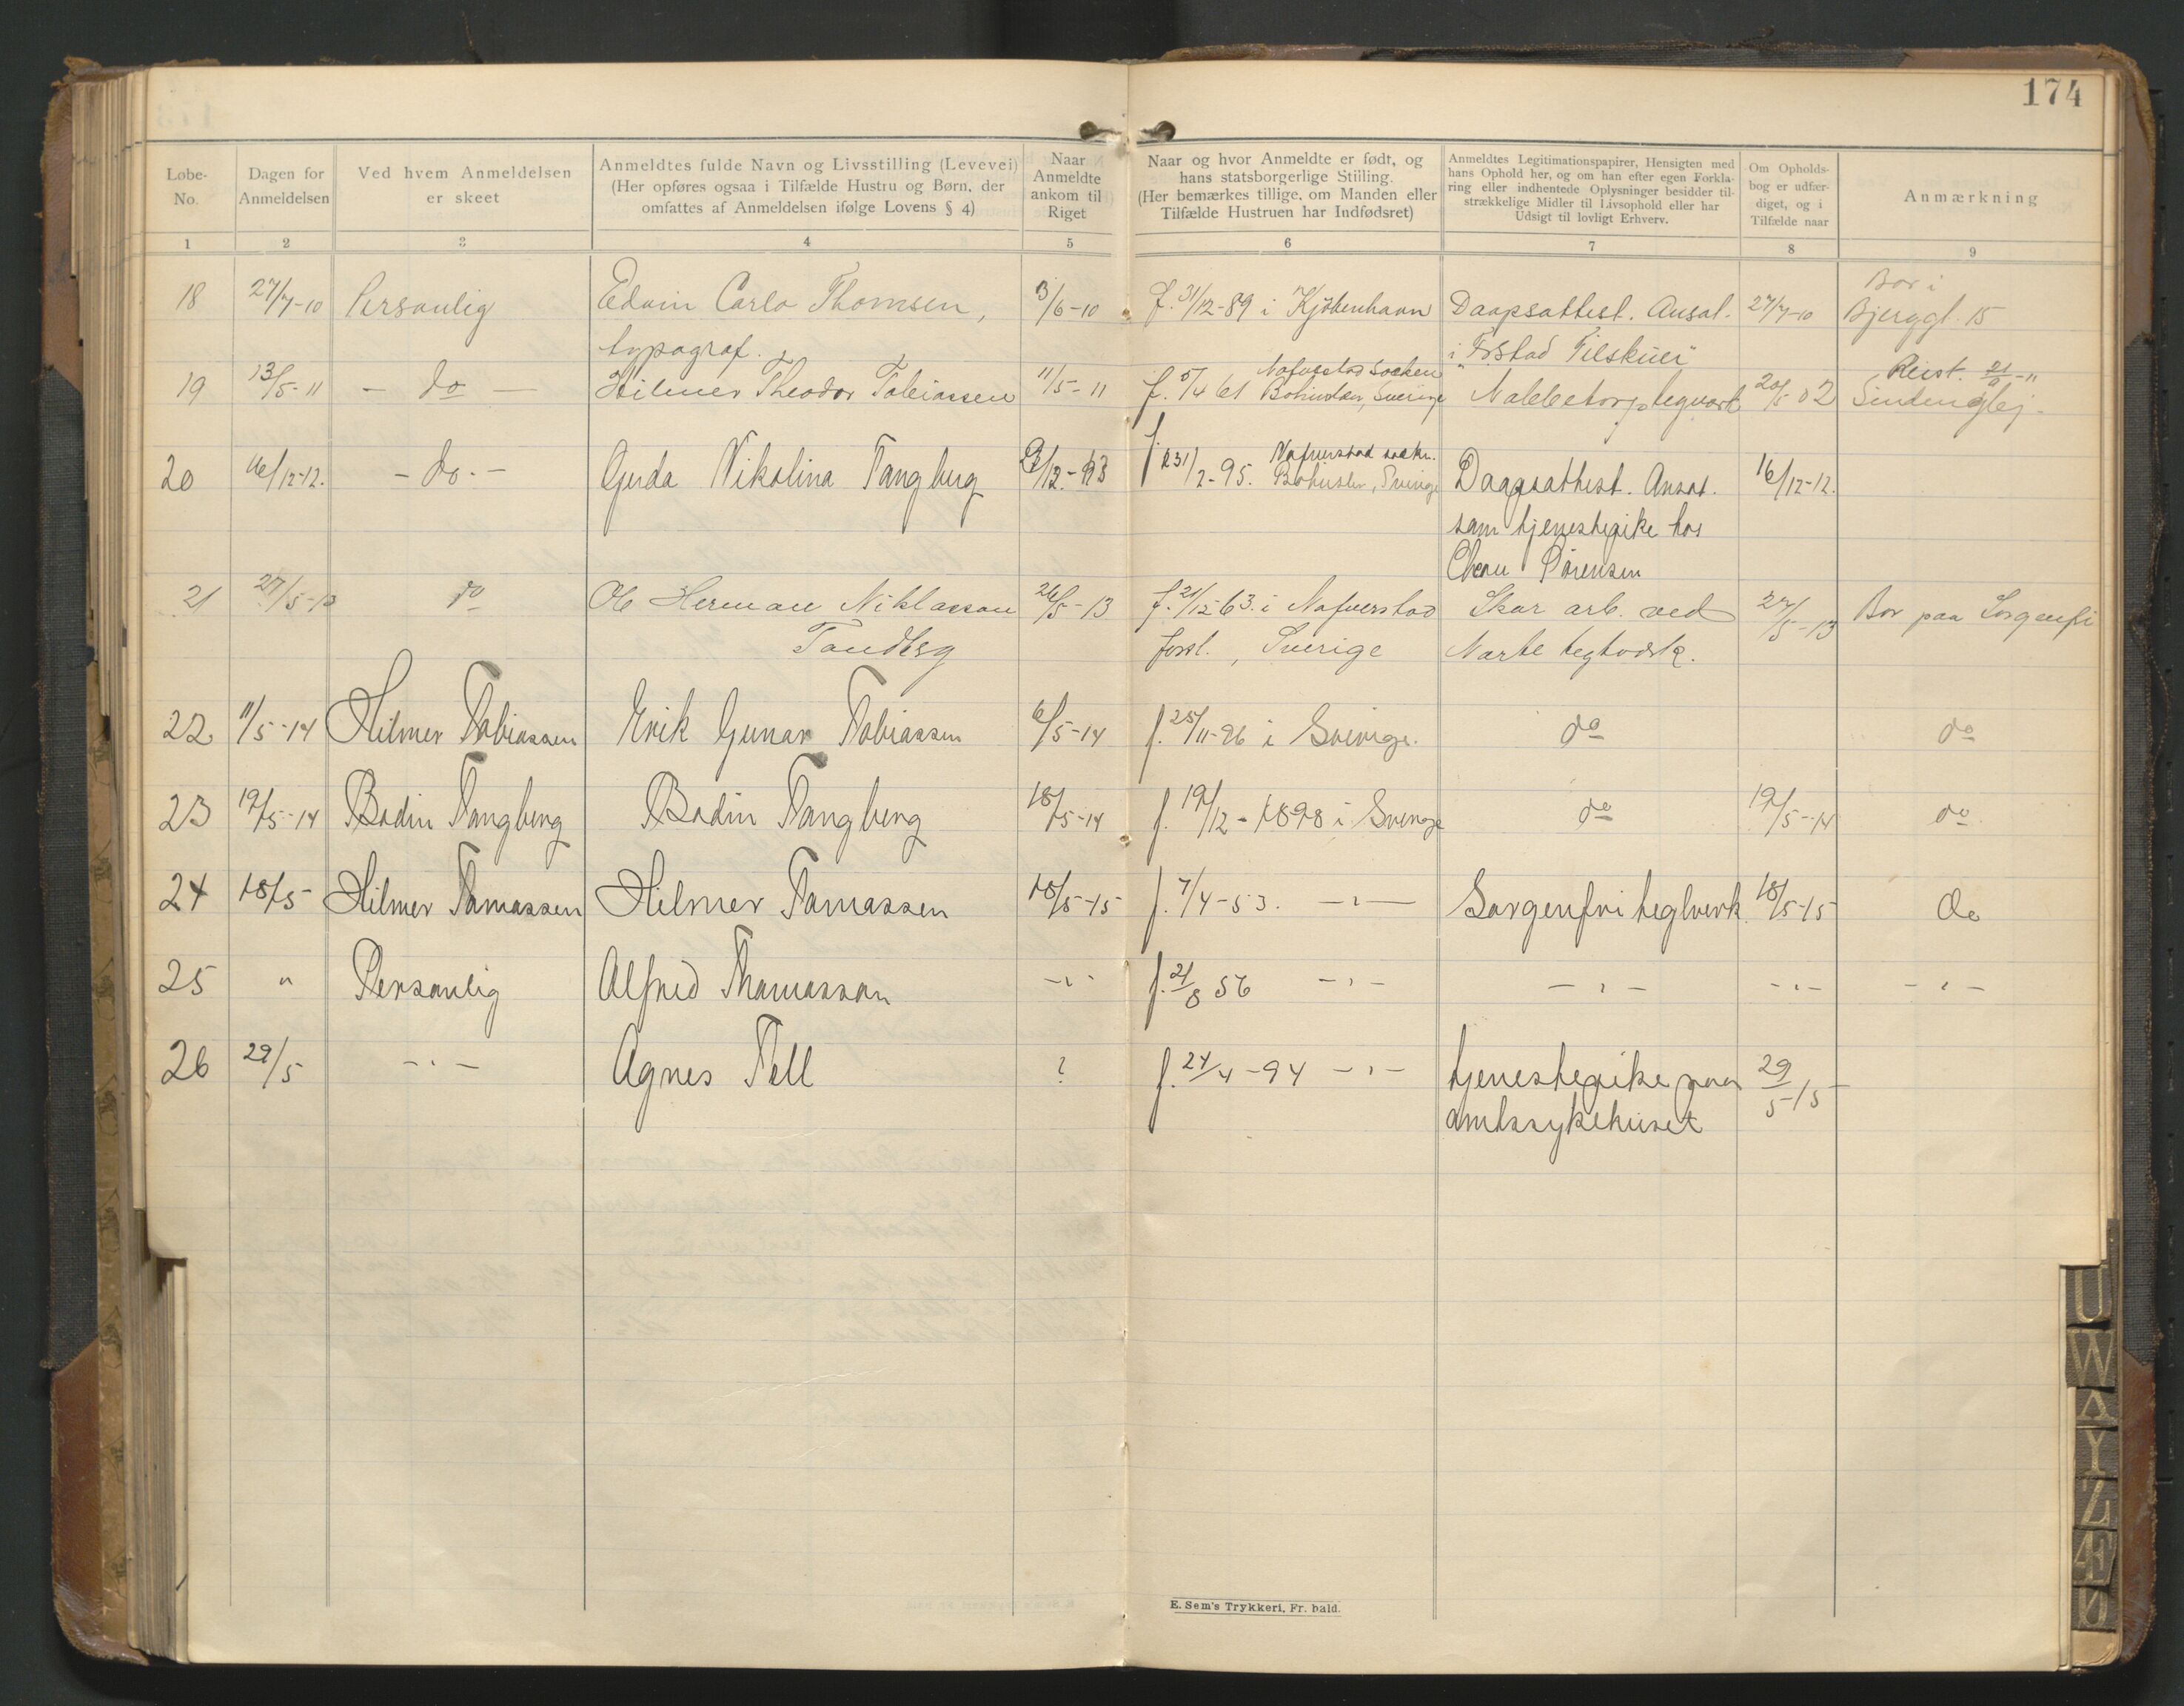 174
Løbe-No. | Dagen for Anmeldelsen | Ved hvem Anmeldelsen er skeet | Anmeldtes fulde Navn og Livsstilling (Levevei) (Her opføres ogsaa i Tilfælde Hustru og Børn, der omfattes af Anmeldelsen ifølge Lovens § 4) | Naar Anmeldte ankom til Riget | Naar og hvor Anmeldte er født, og hans statsborgerlige Stilling. (Her bemærkes tillige, om Manden eller Tilfælde Hustruen har Indfødsret) | Anmeldtes Legitimationspapirer, Hensigten med hans Ophold her, og om han efter egen Forklaring eller indhentede Oplysninger besidder tilstrækkelige Midler til Livsophold eller har Udsigt til lovligt Erhverv. | Om Opholdsbog er udfærdiget, og i Tilfælde naar | Anmærkning
1 | 2 | 3 | 4 | 5 | 6 | 7 | 8 | 9
18 | 27/7-10 | Personlig | Edvin Carlo Thomsen, | 3/6-10 | f. 31/12-89 i Kjöbenhavn | Daapsattest. Ansat. | 27/7-10 | Bor i Bjerggt. 15
typograf. | i Tilskuer"
19 | 13/5-11 | - do - | Hilmer Theodor Tobiassen | 11/5-11 | f. 5/4 61 Bohuslen, Sverige | 20/5 02 | Reist.
20 | 16/12-12. | - do. - | Gerda Nikolina Tangberg | Bohuslen, Sverige | Daapsattest. Ansat. | 16/12-12.
som tjenestepike hos
Sørensen
21 | 27/5-13 | do | Ole Herman Niklasson | 26/5-13 | f. 21/12-63. i Nafverstad | Skar arb. ved | 27/5-13 | Bor paa Sorgenfri
Tandberg | Sverige
22 | 11/5-14 | Hilmer Tobiassen | Erik Gunar Tobiassen | 6/5-14 | f. 25/11-96 i Sverige. | do | do
23 | 19/5-14 | Bodin Tangberg | Bodin Tangberg | 18/5-14 | f. 19/12-1898 i Sverige | do | 19/5-14 | do
24 | 18/5 | Hilmer Tomassen | Hilmer Tomassen | 18/5-15 | f. 7/4-53. -"- | Sorgenfri teglverk. | 18/5-15 | do
25 | " | Personlig | Alfred Thomasson | -"- | f. 21/8 56 -"- | -"- | -"- | -"-
26 | 29/5 | -"- | Agnes Tell | ? | f. 24/4-94 -"- | tjenestepike paa | 29/5-15
amtssykehuset
E. Sem's Trykkeri, Fr. hald.
U
W
Y
Z
Æ
Ø